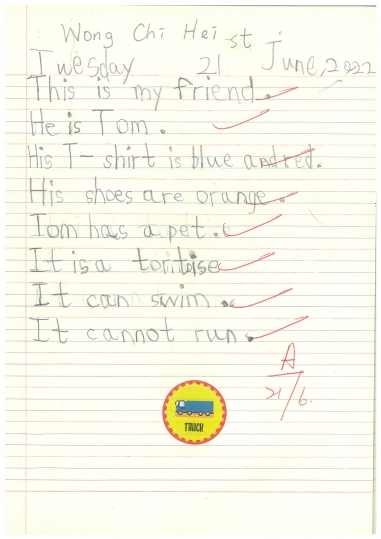 Wong Chi Hei
Tuesday 21st June, 2022
This is my friend.
He is Tom.
His T-shirt is blue and red.
His shoes are orange.
Tom has a pet.
It is a toritoise
It can swim.
It cannot run.
A
21/6.
TRUCK